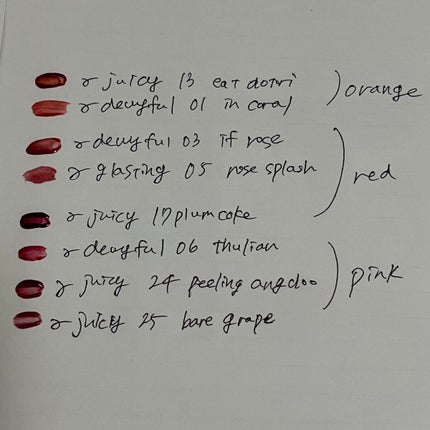 r juicy 13 eat dotori
r dewyful 01 in coral
orange
r dewyful 03 if rose
r glasting 05 rose splash
red
r juicy 17 plum coke
r dewyful 06 thulian
r juicy 24 peeling angdoo
pink
r juicy 25 bare grape